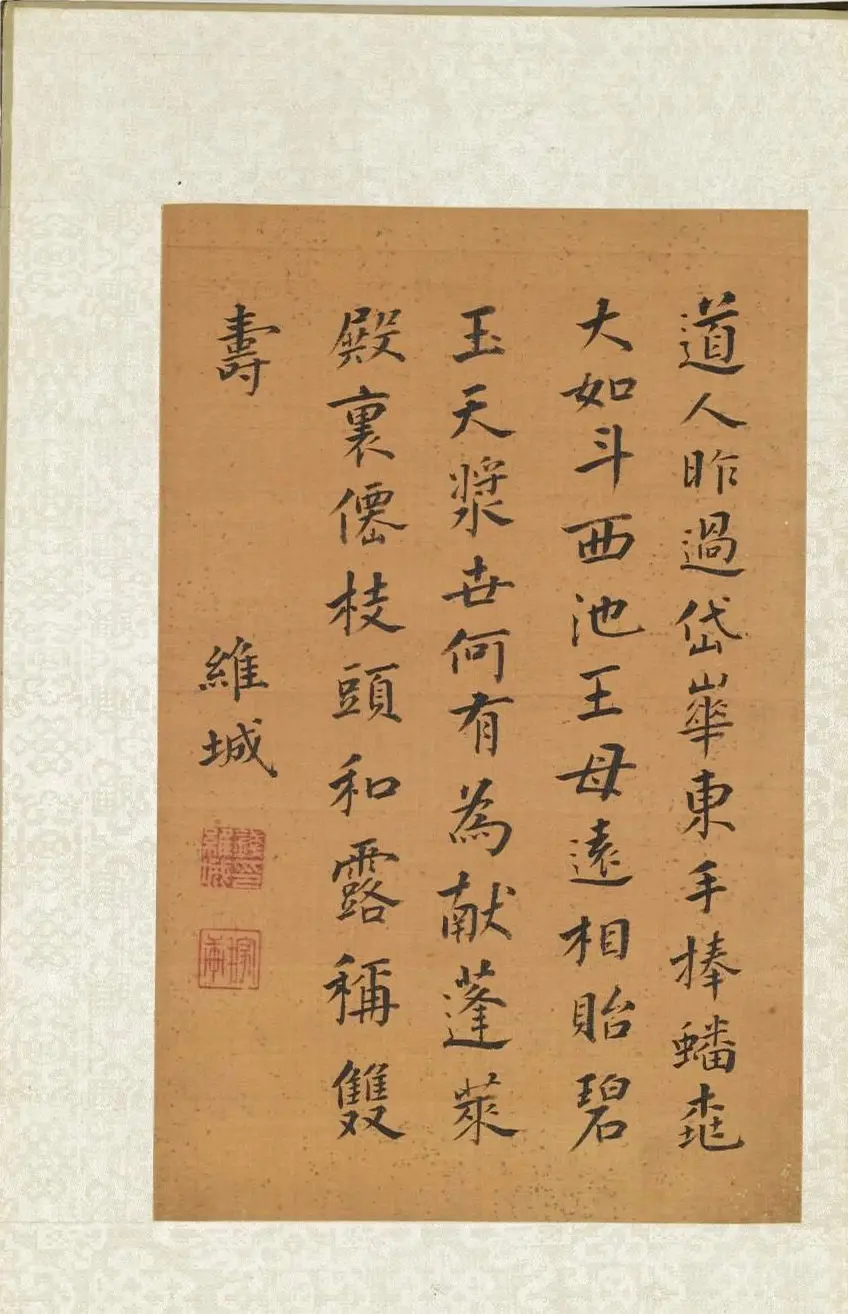 道人昨過岱崋東手棒蟠桃
大如斗西池王母遠相貽碧
玉天漿世何有為献蓬萊
殿裏僊枝頭和露稱雙
壽
維城